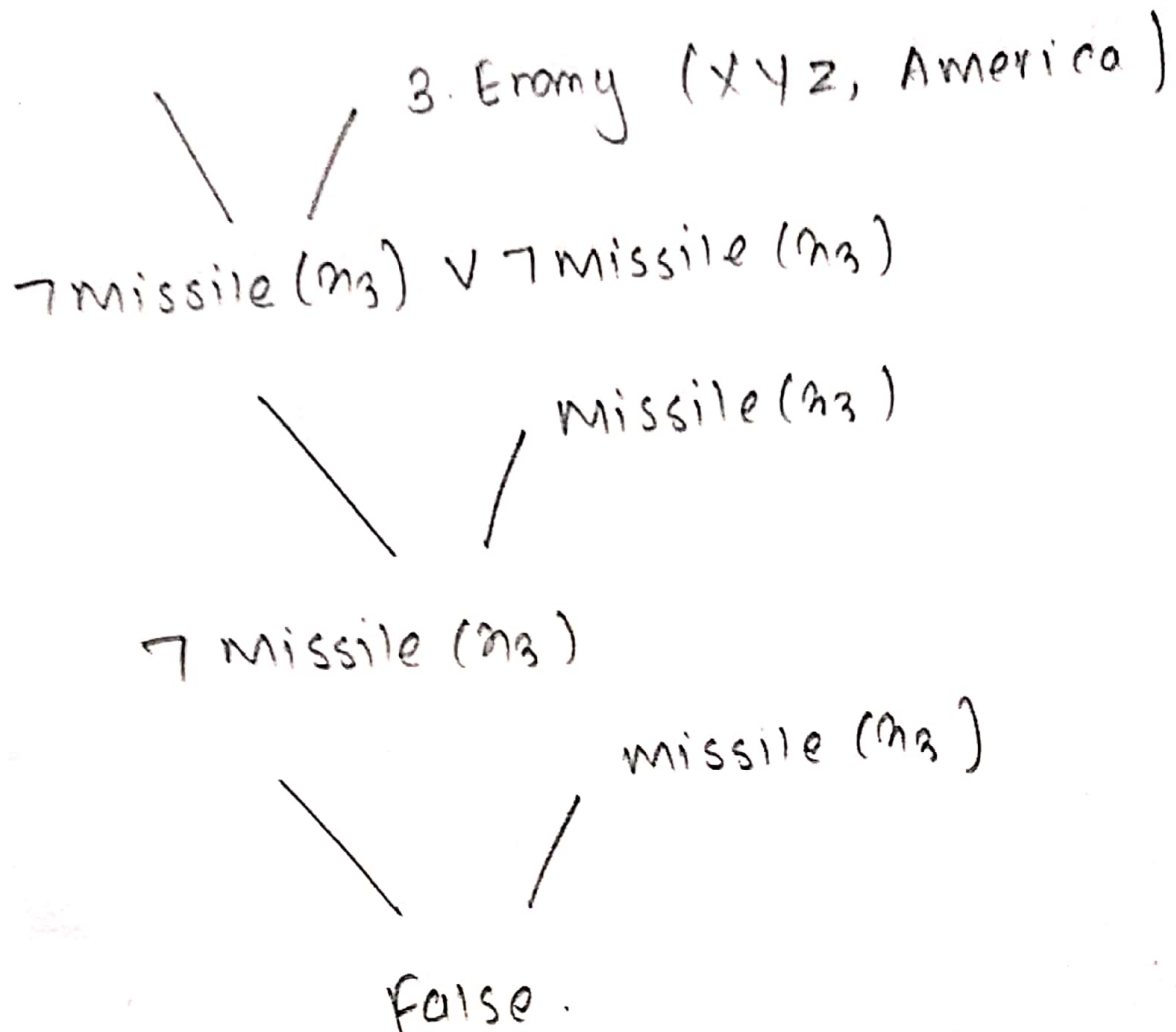 3. Enomy (XYZ, America)
¬missile (x3) ∨ ¬missile (x3)
missile (x3)
¬ missile (x3)
missile (x3)
False.